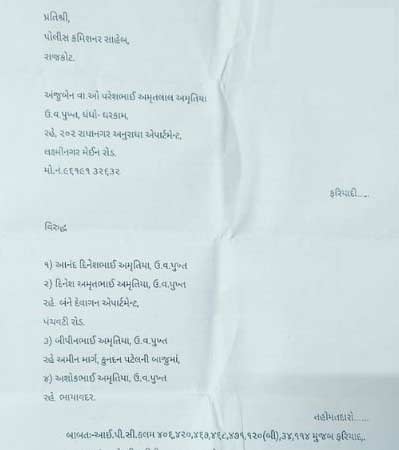 પ્રતિશ્રી,
પોલીસ કમિશનર સાહેબ,
રાજકોટ.
અંજુબેન વા.ઓ પરેશભાઈ અમૃતલાલ અમૃતિયા
ઉ.વ.પુખ્ત, ધંધો- ઘરકામ,
રહે, ૨૦૨ રાધાનગર અનુરાધા એપાર્ટમેન્ટ,
લક્ષ્મીનગર મેઈન રોડ.
મો.નં.૯૬૧૯૧ ૩૨૬૩૨
ફરિયાદી.....
વિરુદ્ધ
૧) આનંદ દિનેશભાઈ અમૃતિયા, ઉ.વ.પુખ્ત
૨) દિનેશ અમૃતભાઈ અમૃતિયા, ઉ.વ.પુખ્ત
રહે. બંને દેવાગન એપાર્ટમેન્ટ,
પંચવટી રોડ.
૩) બીપીનભાઈ અમૃતિયા, ઉ.વ.પુખ્ત
રહે અમીન માર્ગ, કુનદન પટેલની બાજુમાં,
૪) અશોકભાઈ અમૃતિયા, ઉ.વ.પુખ્ત
રહે. ભાયાવદર.
તહોમતદારો......
બાબત:-આઈ.પી.સી.કલમ ૪૦૬,૪૨૦,૪૬૭,૪૬૮,૪૭૧,૧૨૦(બી),૩૪,૧૧૪ મુજબ ફરિયાદ,.